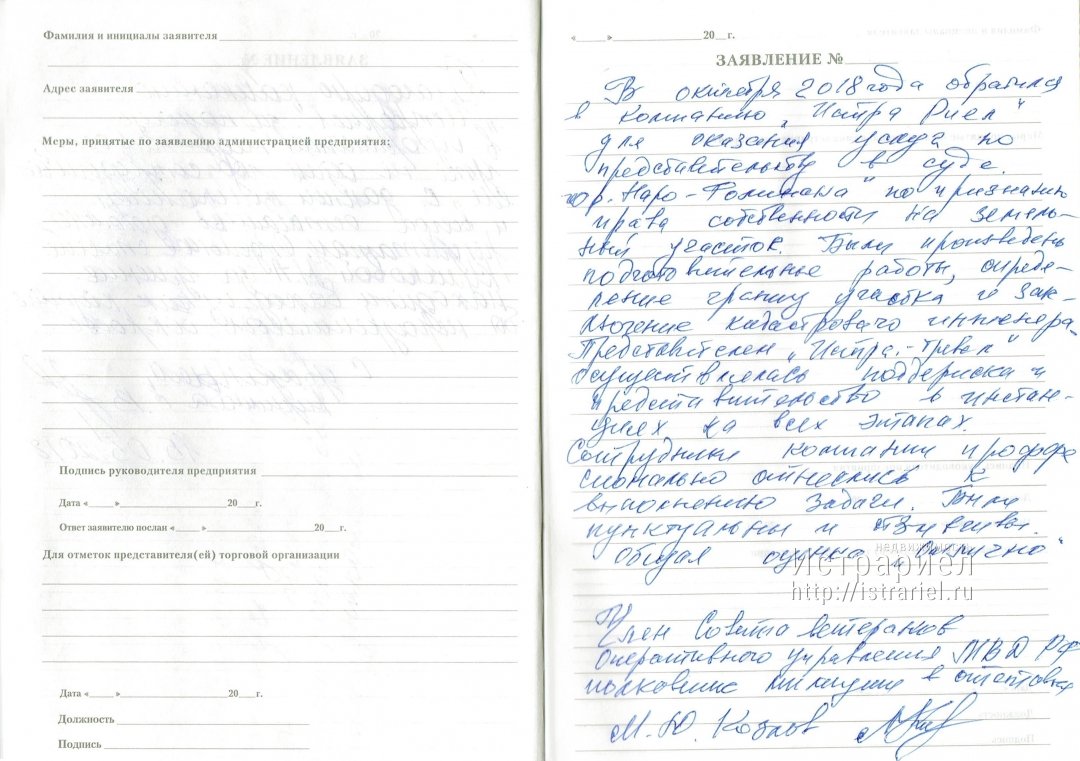 Фамилия и инициалы заявителя
Адрес заявителя
Меры, принятые по заявлению администрацией предприятия:
Подпись руководителя предприятия
Дата «___» ___ 20__г.
Ответ заявителю послан «___» ___ 20__г.
Для отметок представителя(ей) торговой организации
Дата «___» ___ 20__г.
Должность
Подпись
«___» ___ 20__г.
ЗАЯВЛЕНИЕ №
В октября 2018 года обратился
в компанию „Истра Риел"
для оказания услуга по
представительству в суде
гор. Наро-Фоминска" по признанию
права собственности на земель-
ный участок. Были произведены
подготовительные работы, опреде-
ление границ участка и зак-
лючение кадастрового инженера.
Представителем „Истра-
осуществлялась поддержка и
представительство в инстан-
циях на всех этапах.
Сотрудники компании профес
сионально отнеслись к
выполнению задачи. Были
пунктуальны и
Общая оценка „Отлично"
недвижимость
Истрариел
http://istrariel.ru
Член Совета ветеранов
Оперативного управления МВД РФ
полковник милиции в отставке
М.Ю. Козлов